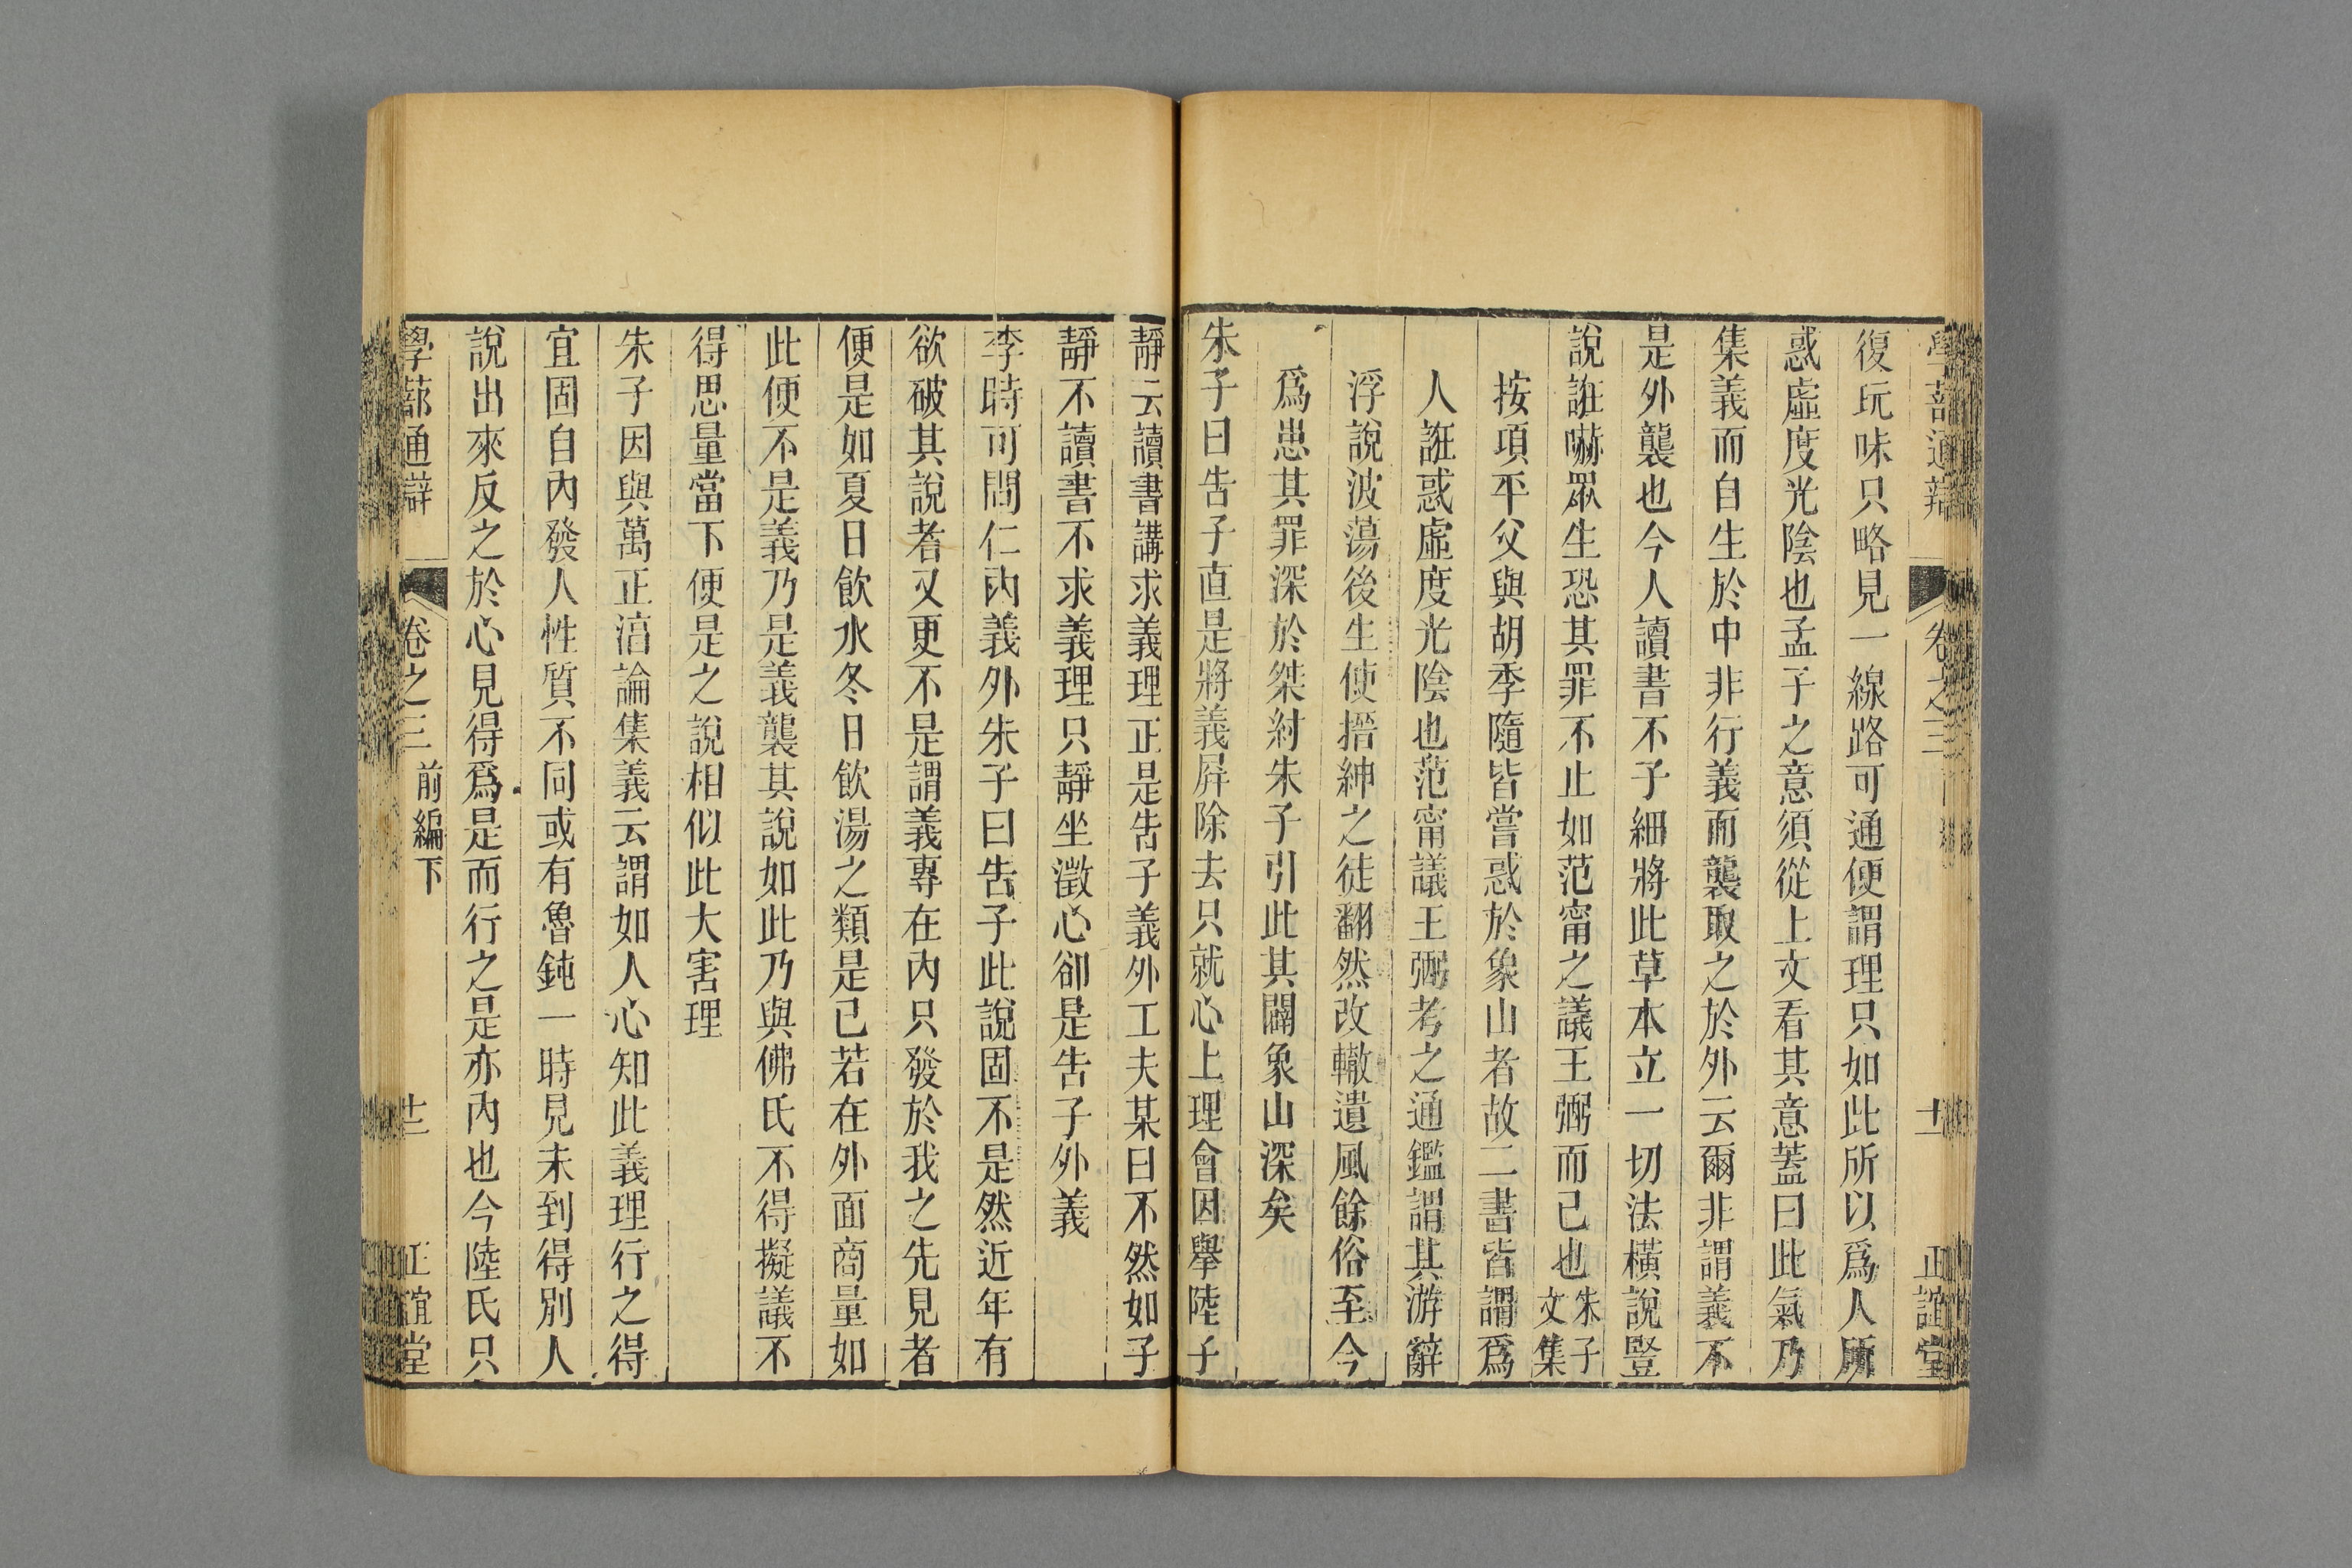 學蔀通辯 卷之三 十一 正誼堂
復玩味只略見一線路可通便謂理只如此所以爲人所
惑虛度光陰也孟子之意須從上文看其意蓋曰此氣乃
集義而自生於中非行義而襲取之於外云爾非謂義不
是外襲也今人讀書不子細將此草本立一切法橫說豎
說誑嚇眾生恐其罪不止如范甯之議王弼而已也朱子文集
按項平父與胡季隨皆嘗惑於象山者故二書皆謂爲
人誑惑虛度光陰也范甯議王弼考之通鑑謂其游辭
浮說波蕩後生使搢紳之徒翻然改轍遺風餘俗至今
爲患其罪深於桀紂朱子引此其闢象山深矣
朱子曰告子直是將義屏除去只就心上理會因舉陸子
靜云讀書講求義理正是告子義外工夫某曰不然如子
靜不讀書不求義理只靜坐澂心卻是告子外義
李時可問仁內義外朱子曰告子此說固不是然近年有
欲破其說者又更不是謂義專在內只發於我之先見者
便是如夏日飲水冬日飲湯之類是已若在外面商量如
此便不是義乃是義襲其說如此乃與佛氏不得擬議不
得思量當下便是之說相似此大害理
朱子因與萬正淳論集義云謂如人心知此義理行之得
宜固自內發人性質不同或有魯鈍一時見未到得別人
說出來反之於心見得爲是而行之是亦內也今陸氏只
學蔀通辯 卷之三 前編下 十二 正誼堂